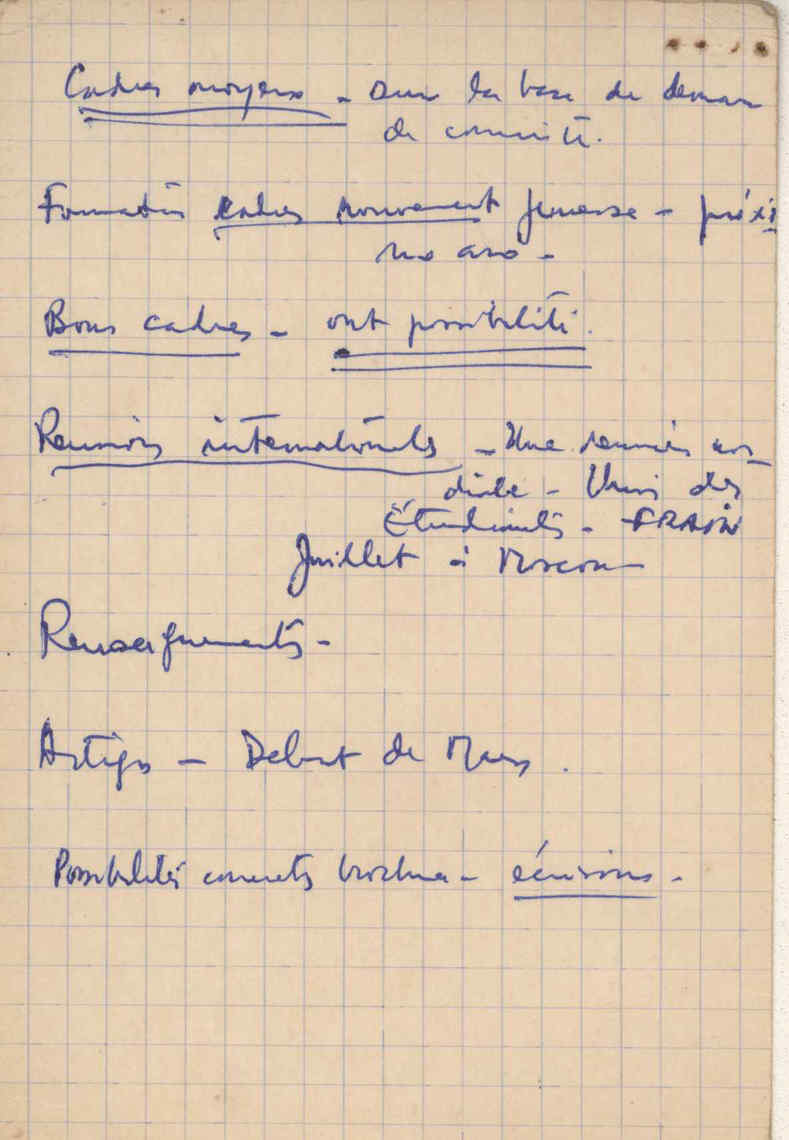 Cadres moyens - Sur la base de deman
de comité.
Formation cadres mouvement jeunesse - proxi
mo ano -
Bons cadres - ont possibilité.
Reunions internationales - Une reunion mon
diale - Union des
Étudiants -
Juillet à Moscou
Renseignements -
Artigo - Debut de Mars.
Possibilités concrets brochure - écrivons -